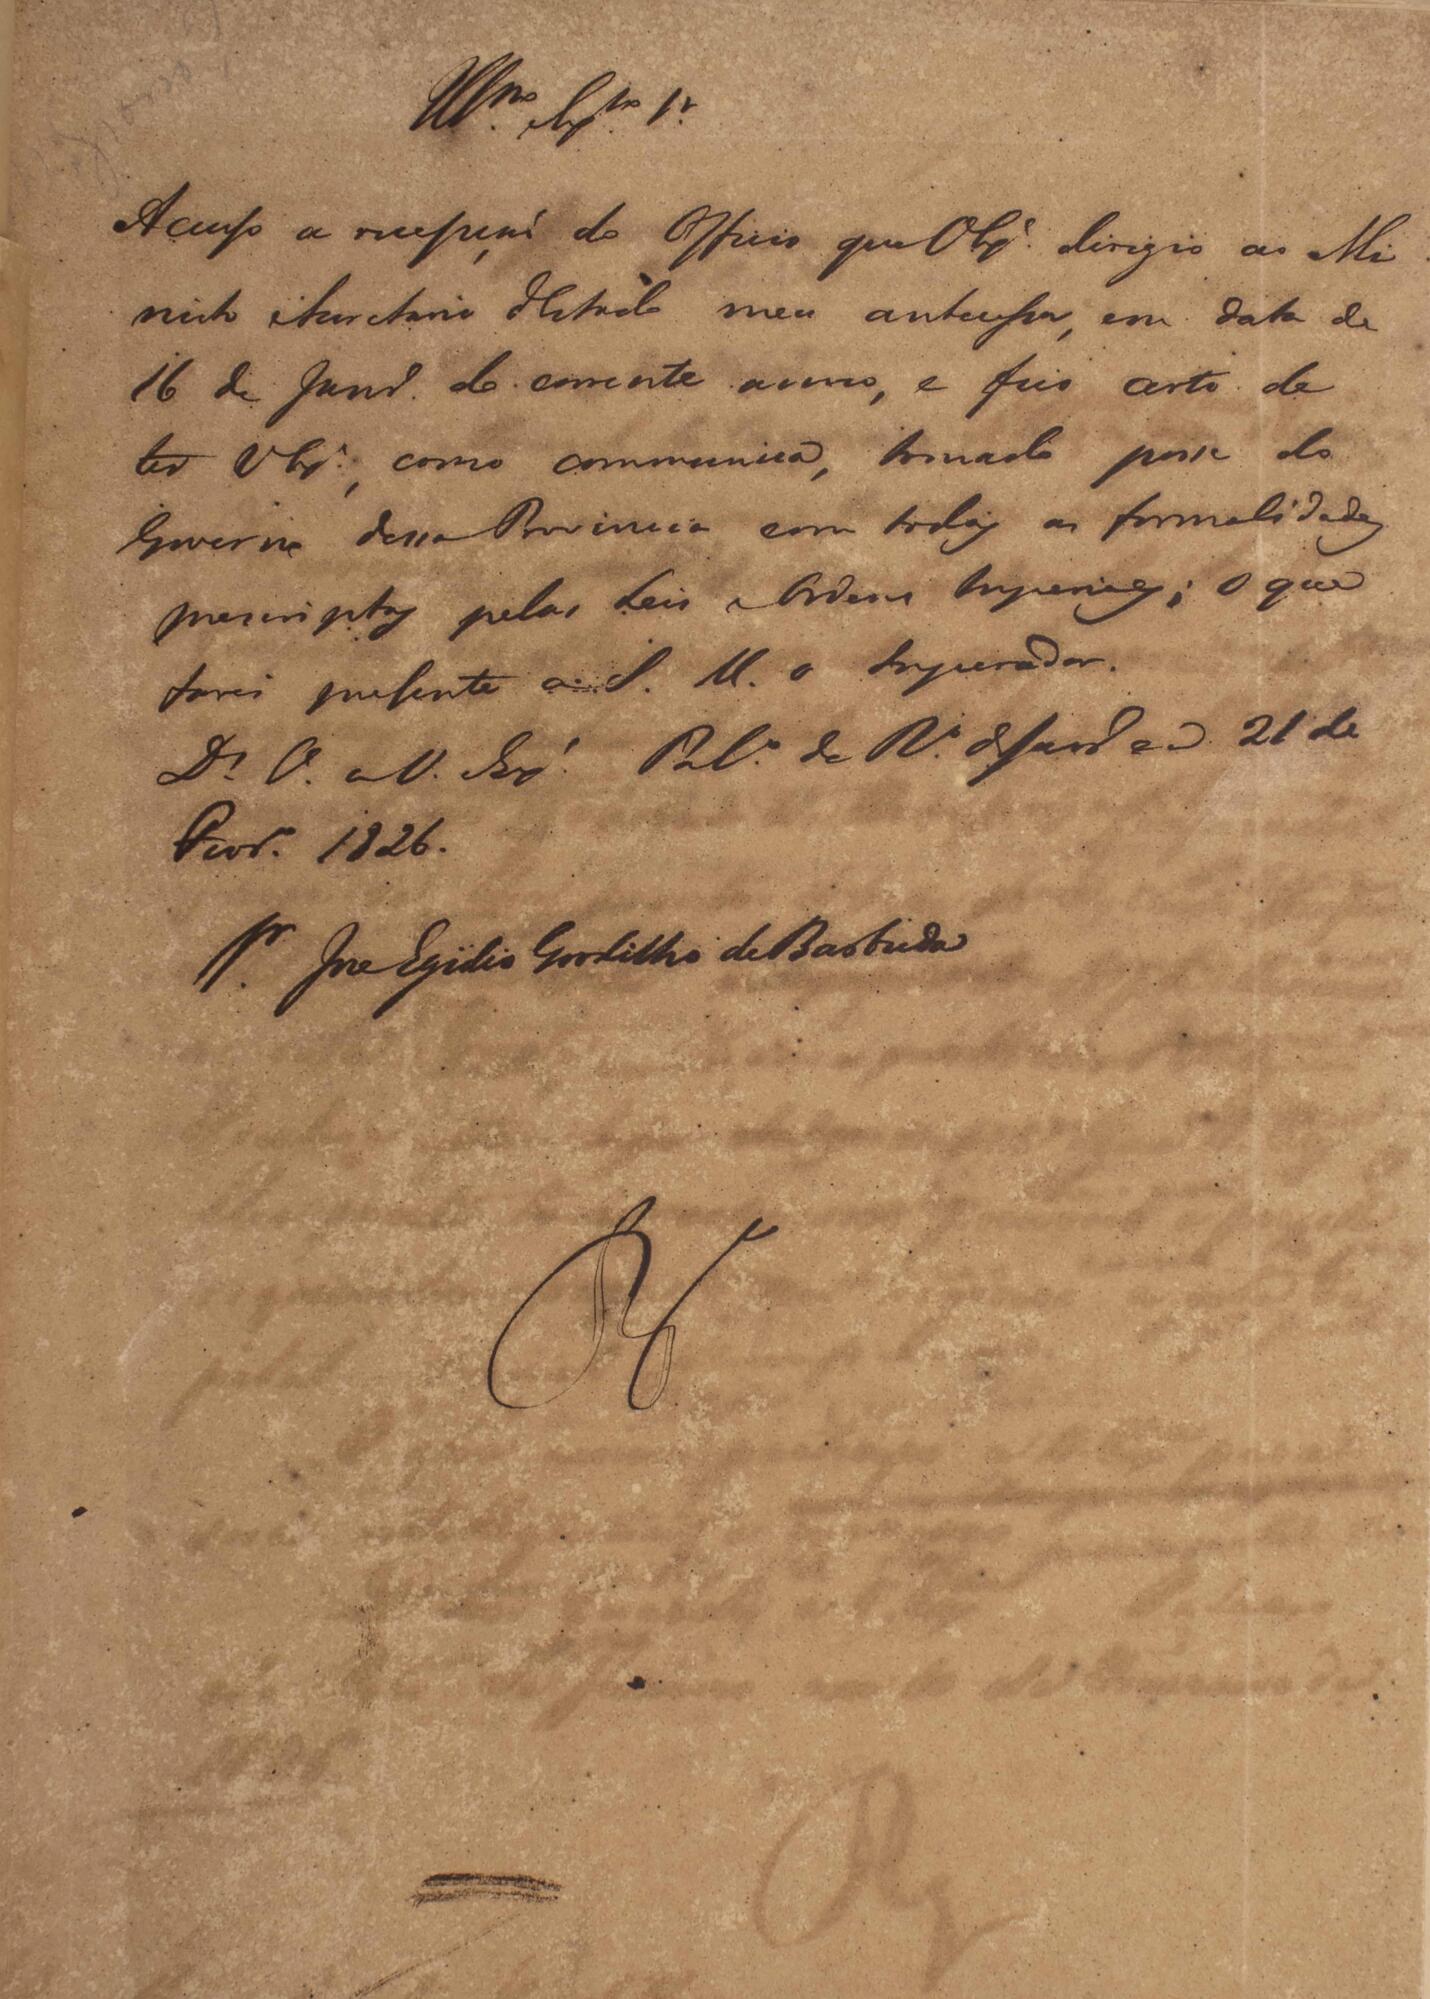 Illmo. Exmo. Sr.
Accuso a recepção do Officio que V Exa. dirigio ao Mi
nistro e Secretario d'Estado meu antecessor, em data de
16 de Janro. do corrente anno, e fico certo de
ter V Exa., como communica, tomado posse do
Governo dessa Provincia com todas as formalidades
prescriptas pelas Leis e Ordens Imperiaes; o que
farei presente a S. M. o Imperador.
Ds. G. a V. Exa. Palo. do Ro. de Janro em 21 de
Fevro. 1826.
Sr. Jose Egidio Gordilho de Barbuda